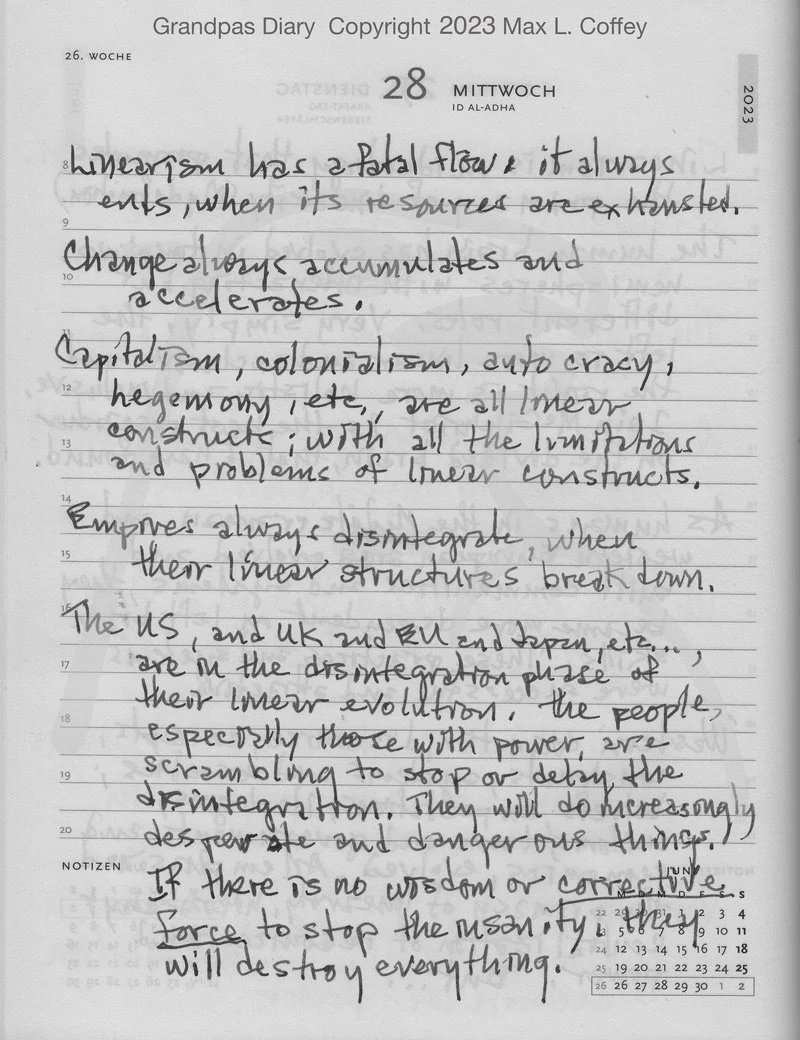 Grandpas Diary Copyright 2023 Max L. Coffey
26. WOCHE
28 MITTWOCH
ID AL-ADHA
2023
8 Linearism has a fatal flaw: it always
ents, when its resources are exhausted.
9
Change always accumulates and
10
accelerates.
11
Capitalism, colonialism, autocracy,
12
hegemony, etc., are all linear
13 constructs; with all the limitations
and problems of linear constructs.
14
Empires always disintegrate, when
15
their linear structures break down.
16
The US, and UK and EU and Japan, etc...,
17
are in the disintegration phase of
their linear evolution. The people,
18
especially those with power, are
19
scrambling to stop or delay the
disintegration. They will do increasingly
20
desperate and dangerous things.
NOTIZEN
If there is no wisdom or corrective
force to stop the insanity, they
will destroy everything.
JUNI
M D M D F S S
22 29 30 31 1 2 3 4
23 5 6 7 8 9 10 11
24 12 13 14 15 16 17 18
25 19 20 21 22 23 24 25
26 26 27 28 29 30 1 2